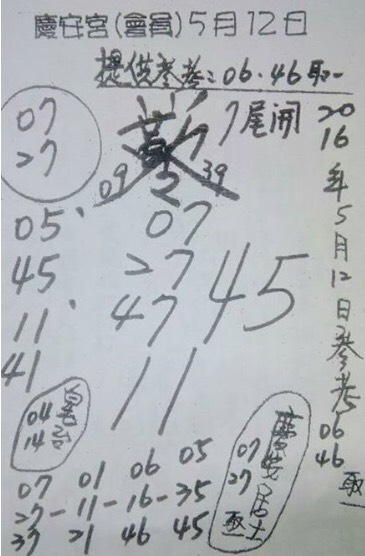 慶安宮(會員)5月12日
提供參考:06.46取一
07
27
7尾開
09
39
05、
45
11、
41
07
27
47
45
11
2016年5月12日參考06 46 取一
04
14
07
27
07 01 06 05
27-11-16-35
37 21 46 45